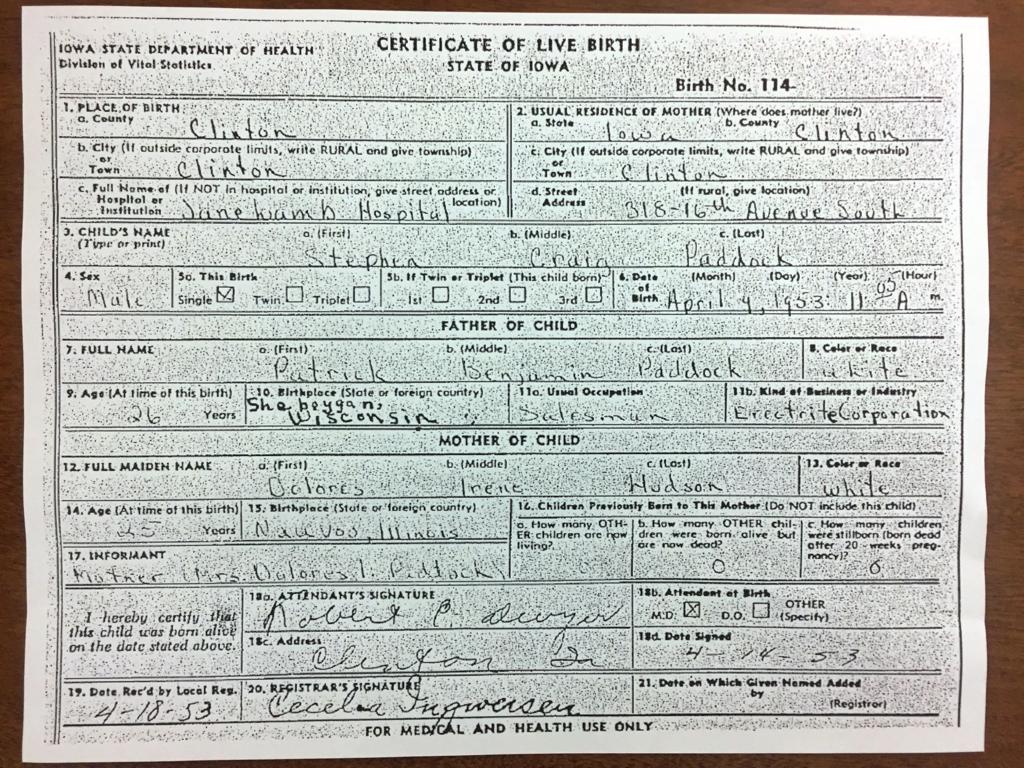 IOWA STATE DEPARTMENT OF HEALTH
Division of Vital Statistics
CERTIFICATE OF LIVE BIRTH
STATE OF IOWA
Birth No. 114-
1. PLACE OF BIRTH
a. County
Clinton
2. USUAL RESIDENCE OF MOTHER (Where does mother live?)
a. State Iowa b. County Clinton
b. City (If outside corporate limits, write RURAL and give township)
or
Town Clinton
c. City (If outside corporate limits, write RURAL and give township)
or
Town Clinton
c. Full Name of (If NOT in hospital or institution, give street address or location)
Hospital or
Institution Jane Lamb Hospital
d. Street (If rural, give location)
Address 318-16th Avenue South
3. CHILD'S NAME a. (First) b. (Middle) c. (Last)
(Type or print) Stephen Craig Paddock
4. Sex
Male
5a. This Birth
Single ☒ Twin ☐ Triplet ☐
5b. If Twin or Triplet (This child born)
1st ☐ 2nd ☐ 3rd ☐
6. Date of Birth (Month) (Day) (Year) (Hour)
April 9, 1953 11 05 A m.
FATHER OF CHILD
7. FULL NAME a. (First) b. (Middle) c. (Last)
Patrick Benjamin Paddock
8. Color or Race
white
9. Age (At time of this birth)
26 Years
10. Birthplace (State or foreign country)
Sheboygan,
Wisconsin
11a. Usual Occupation
Salesman
11b. Kind of Business or Industry
Erectrite Corporation
MOTHER OF CHILD
12. FULL MAIDEN NAME a. (First) b. (Middle) c. (Last)
Dolores Irene Hudson
13. Color or Race
white
14. Age (At time of this birth)
25 Years
15. Birthplace (State or foreign country)
Nauvoo, Illinois
16. Children Previously Born to This Mother (Do NOT include this child)
a. How many OTHER children are now living?
b. How many OTHER children were born alive but are now dead?
0
c. How many children were stillborn (born dead after 20 weeks pregnancy)?
0
17. INFORMANT
Mother (Mrs. Dolores I. Paddock)
I hereby certify that
this child was born alive
on the date stated above.
18a. ATTENDANT'S SIGNATURE
Robert P. Dwyer
18b. Attendant at Birth
M.D. ☒ D.O. ☐ OTHER (Specify)
18c. Address
Clinton Ia
18d. Date Signed
4-14-53
19. Date Rec'd by Local Reg.
4-18-53
20. REGISTRAR'S SIGNATURE
Cecelia Ingwersen
21. Date on Which Given Named Added
by
(Registrar)
FOR MEDICAL AND HEALTH USE ONLY